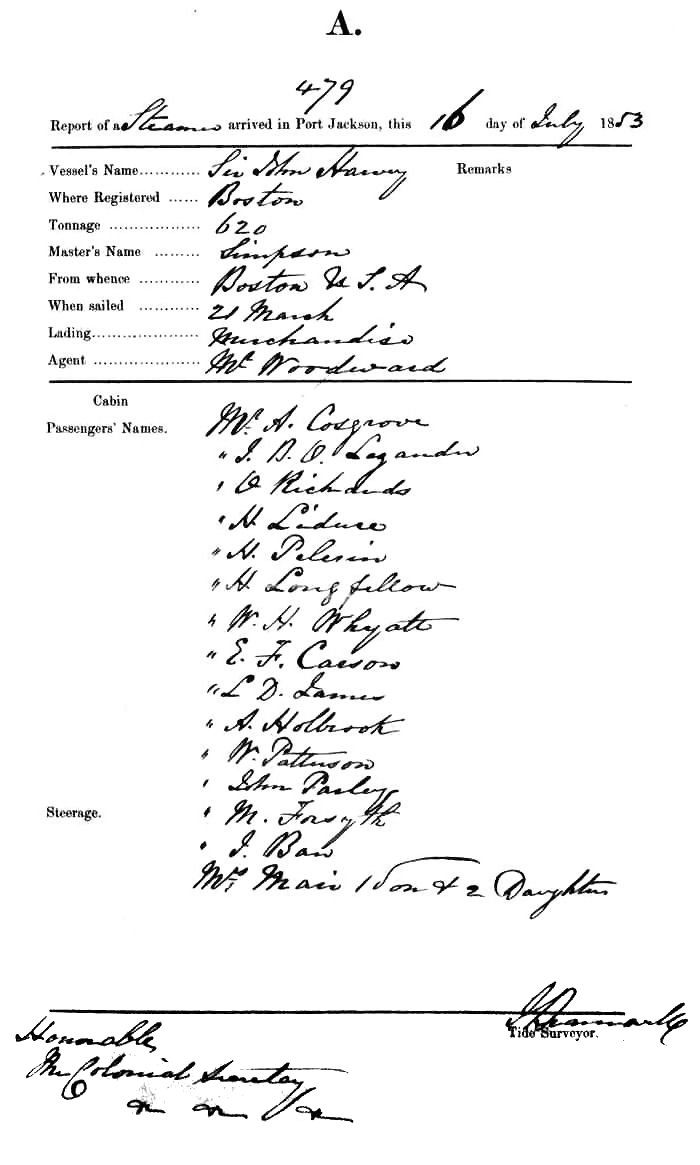 A.
479
Report of a Steamer arrived in Port Jackson, this 16 day of July 1853
Vessel's Name............ Sir John Harvey Remarks
Where Registered ...... Boston
Tonnage .................. 620
Master's Name ......... Simpson
From whence ............ Boston U.S.A
When sailed ............ 21 March
Lading..................... Merchandise
Agent ..................... Mr Woodward
Cabin
Passengers' Names. Mr. A. Cosgrove
" J. B. O.
" O Richards
" H
" H. Pelerin
" H. Longfellow
" W. H. Whyatt
" E. F. Carson
" L D. James
" A. Holbrook
" W. Patterson
" John Pasley
Steerage. " M. Forsyth
" J.
Mrs Mair 1 Son & 2 Daughters
Tide Surveyor.
Honorable,
The Colonial Secretary